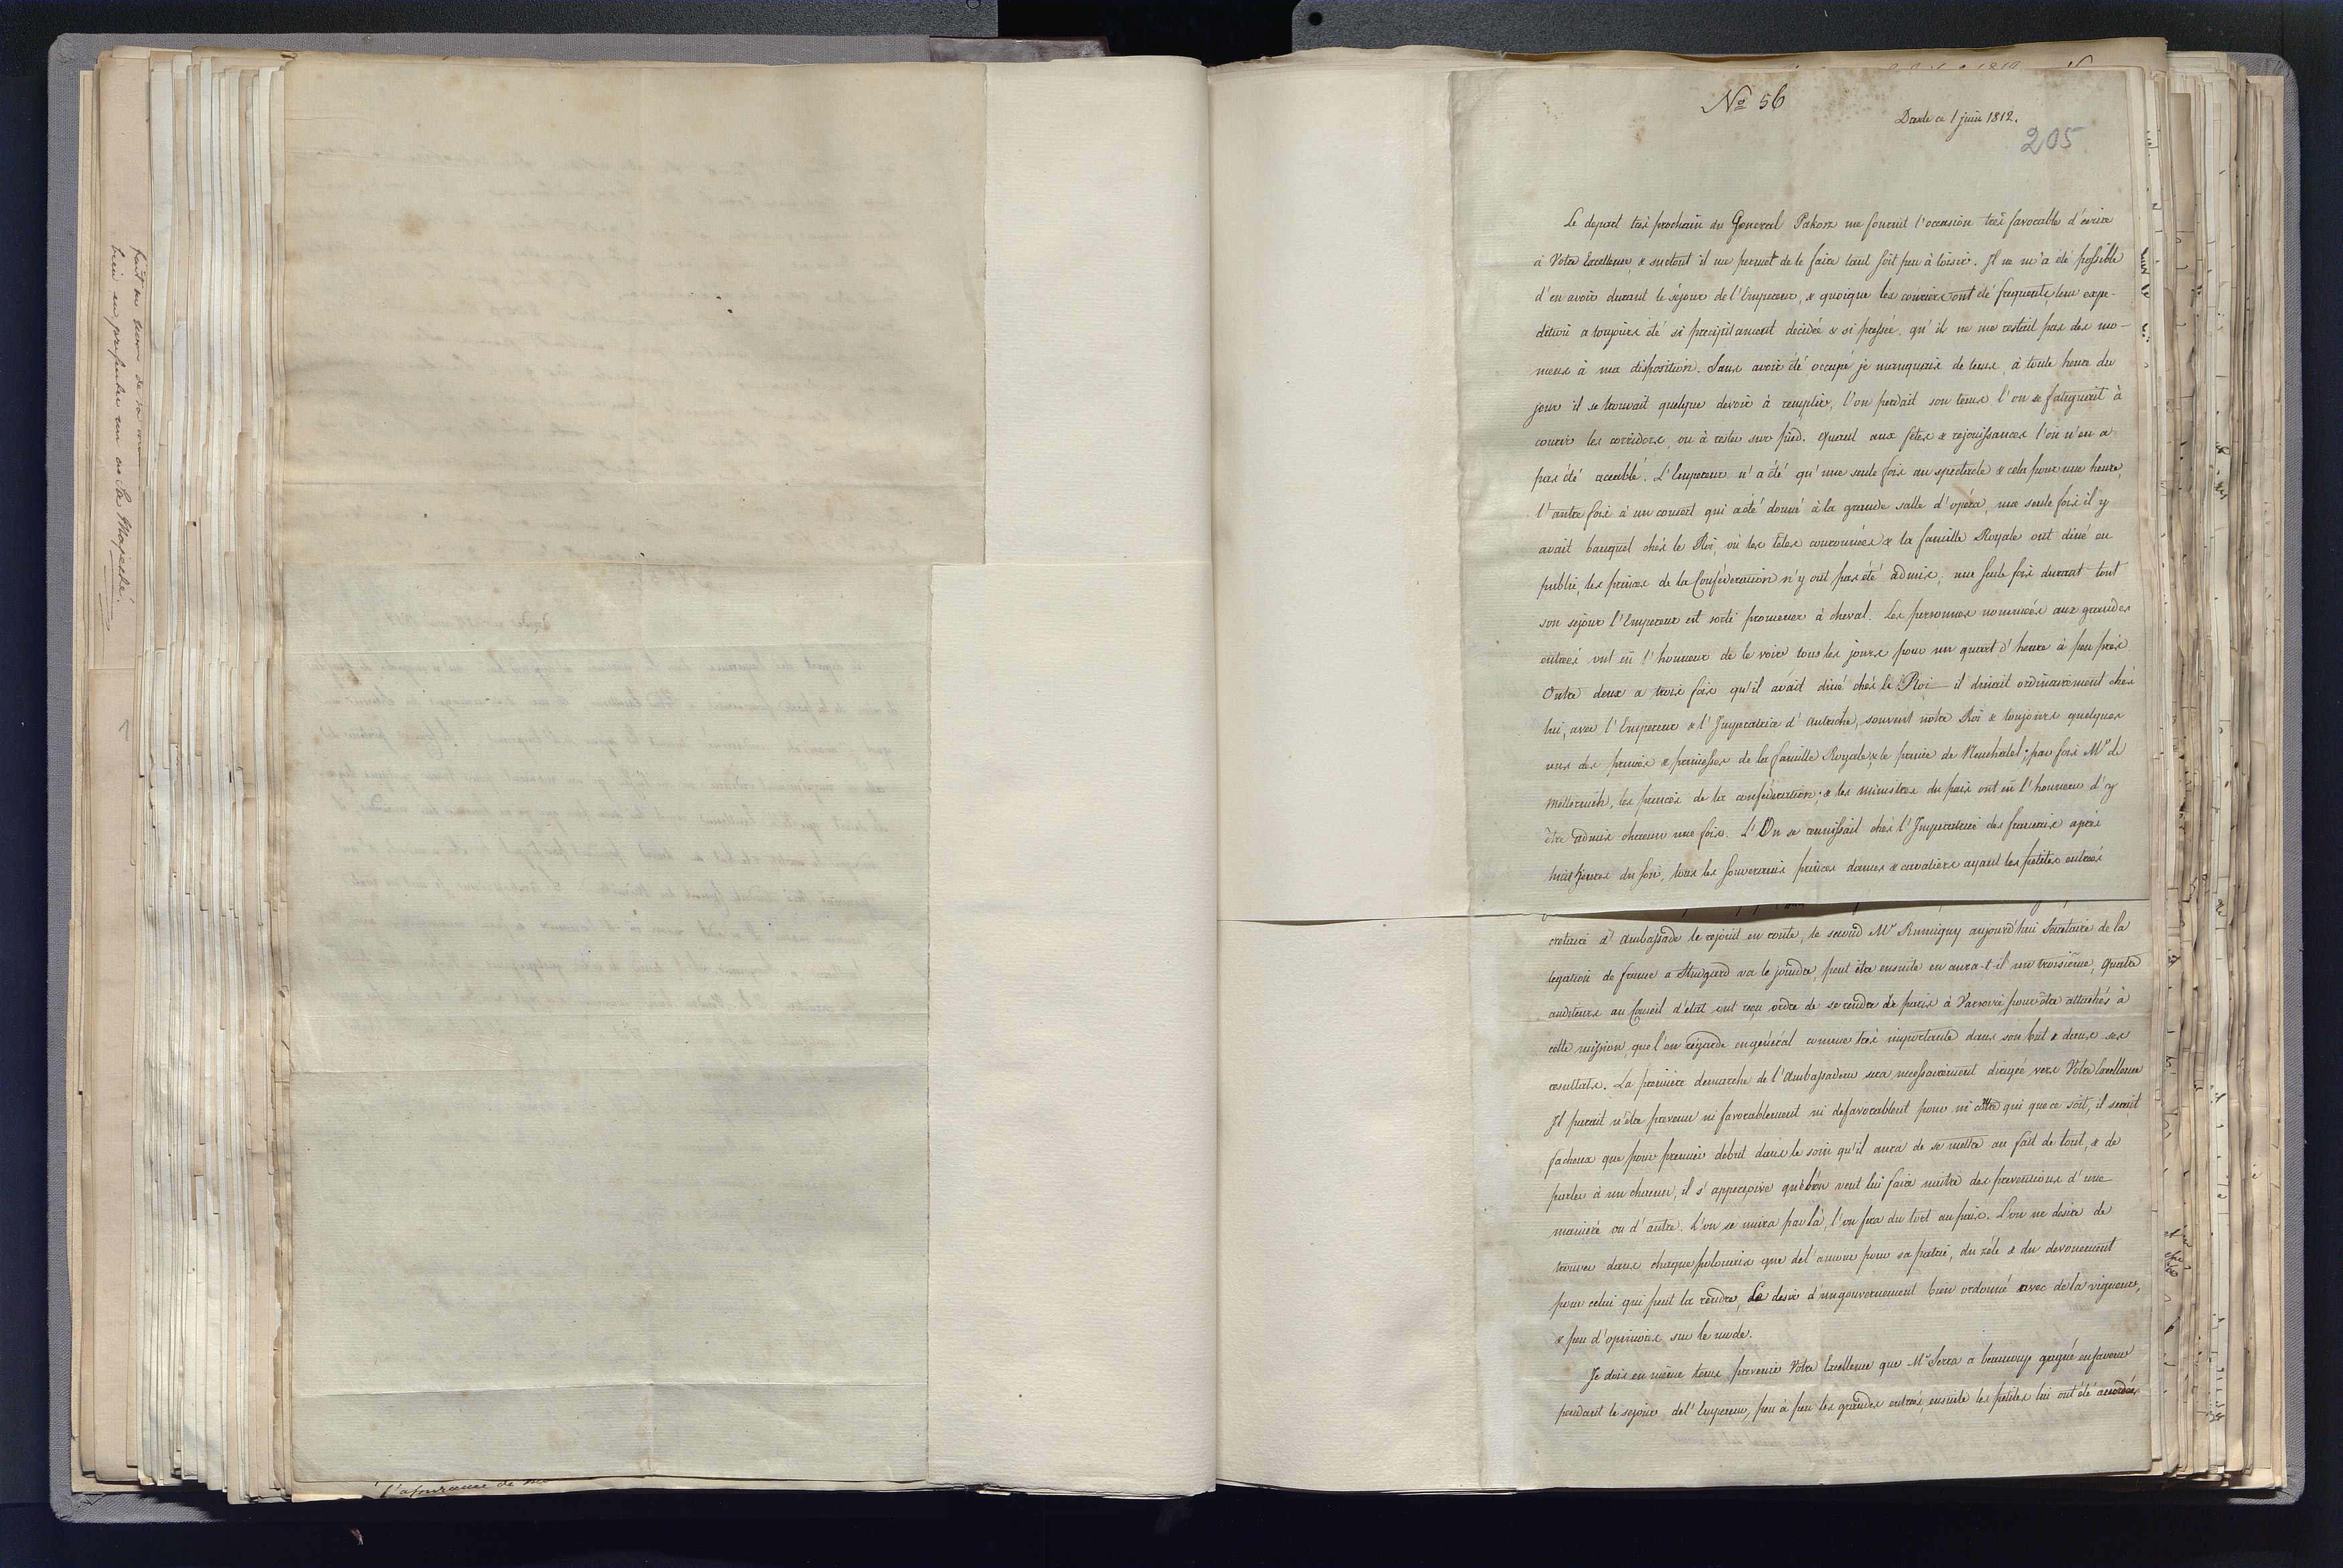 tant au succes de sa
bien en presenter un au Sa Majesté.
l'assurance de
Nº 56
Dresde ce 1 juin 1812.
205
Le depart très prochain du General Pakosz me fournit l'occasion très favorable d'écrire
à Votre Excellence, & surtout il me permet de le faire tant soit peu à loisir. Il ne m'a été possible
d'en avoir durant le séjour de l'Empereur, & quoique les couriers ont été frequents, leur expe-
dition a toujours été si precipitamment decidée & si pressée, qu'il ne me restait pas des mo-
mens à ma disposition. Sans avoir été occupé je manquais de tems, à toute heure du
jour il se trouvait quelque devoir à remplir, l'on perdait son tems l'on se fatiguait à
courir les corridors, ou à rester sur pied. Quant aux fêtes & rejouissances l'on n'en a
pas été accablé. L'Empereur n'a été qu'une seule fois au spectacle & cela pour une heure,
l'autre fois à un concert qui a été donné à la grande salle d'opéra, une seule fois il y
avait banquet chés le Roi, où les têtes couronnées & la famille Royale ont diné en
public, les princes de la Conféderation n'y ont pas été admis; une seule fois durant tout
son sejour l'Empereur est sorti promener à cheval. Les personnes nommées aux grandes
entrées ont eû l'honneur de le voir tous les jours pour un quart d'heure à peu près.
Outre deux a trois fois qu'il avait diné chés le Roi — il dinait ordinairement chés
lui, avec l'Empereur & l'Imperatrice d'Autriche, souvent nôtre Roi & toujours quelques
uns des princes & princesses de la famille Royale, & le prince de Neuchatel; par fois Mr de
Metternich, les princes de la conféderation, & les ministres du pais ont eû l'honneur d'y
être admis chacun une fois. L'On se reunissait chés l'Imperatrice des français après
huit heures du soir, tous les souverains princes dames & cavaliers ayant les petites entrées
cretaire d'Ambassade le rejoint en route, le second Mr Rumigny aujourd'hui Secretaire de la
legation de france a Studgard va le joindre, peut être ensuite en aura-t-il un troisième, quatre
auditeurs au Conseil d'état ont reçu ordre de se rendre de paris à Varsovie pour être attachés à
cette mission, que l'on regarde en général comme très importante dans son but & dans ses
resultats. La première demarche de l'Ambassadeur sera necessairement dirigée vers Votre Excellence
Il parait n'être prevenu ni favorablement ni defavorablent pour ni contre qui que ce soit, il serait
facheux que pour premier debut dans le soin qu'il aura de se mettre au fait de tout, & de
parler à un chacun, il s'apperçoive que l'on veut lui faire naitre des preventions d'une
manière ou d'autre. L'on se nuira par là, l'on fera du tort au pais. L'on ne desire de
trouver dans chaque polonais que de l'amour pour sa patrie, du zéle & du devouement
pour celui qui peut la rendre, Le desir d'un gouvernement bien ordonné avec de la vigueur,
& peu d'opinions sur le mode.
Je dois en même tems prevenir Votre Excellence que Mr Serra a beaucoup gagné en faveur
pendant le sejour de l'Empereur, peu à peu les grandes entrées, ensuite les petites lui ont été accordées